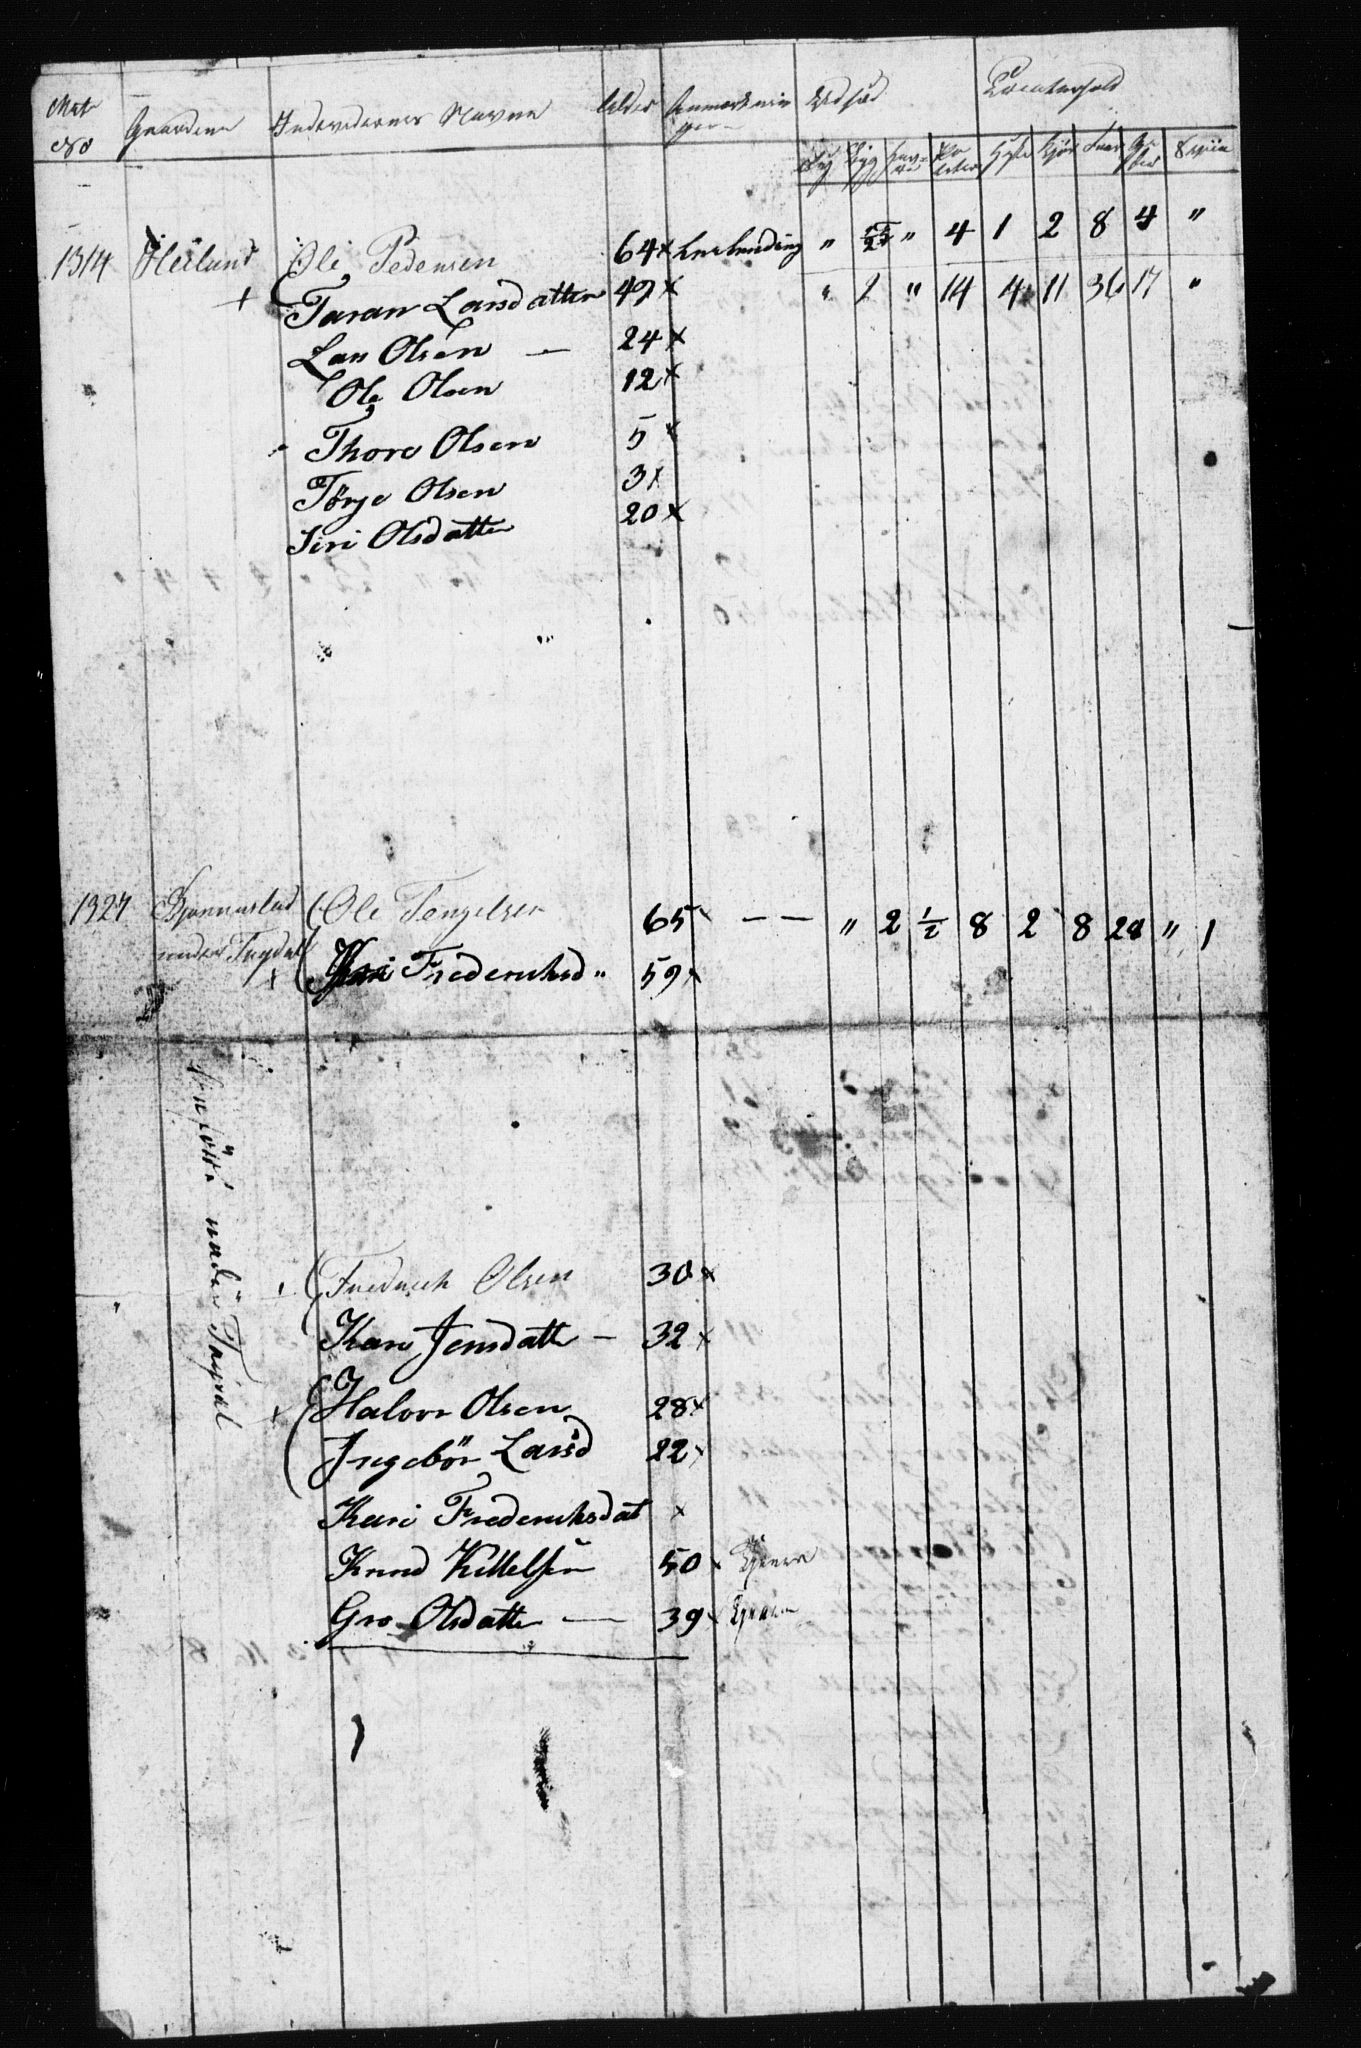 Mat No Gaardene Individernes Navne Alder Anmærkninger Udsæd Creaturhold
Rug Byg Havre Po teter Heste Kjør Faar Ge der Sviin
1314 Heilund Ole Pedersen 64 x " " 4 1 2 8 4 "
+ Taran Larsdatter 49 x " 2 " 14 4 11 36 17 "
Lars Olsen — 24 x
Ole Olsen 12 x
Thore Olsen 5 x
Törje Olsen 3 x
Siri Olsdatter 20 x
1327 Ole Tengelsen 65 x — — " 2 1/2 8 2 8 28 " 1
under x Kari Frederiksd " 59 x
under
Fredrich Olsen 30 x
Kari Jensdatt — 32 x
x Halvor Olsen 28 x
Ingebör Larsd 22 x
Kari Frederiksdat x
Knud Kittelsen 50 x
Gro Olsdatter — 39 x